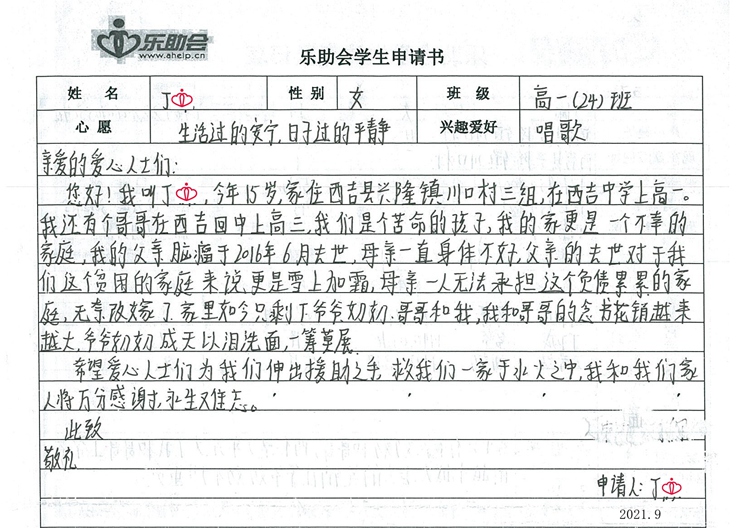 乐助会
www.ahelp.cn
乐助会学生申请书
姓 名 丁 性 别 女 班 级 高一(24)班
心 愿 生活过的安宁,日子过的平静 兴趣爱好 唱歌
亲爱的爱心人士们:
您好!我叫丁,今年15岁,家住西吉县兴隆镇川口村三组,在西吉中学上高一。
我还有个哥哥在西吉回中上高三,我们是个苦命的孩子,我的家更是一个不幸的
家庭,我的父亲脑瘤于2016年6月去世,母亲一直身体不好.父亲的去世对于我
们这个贫困的家庭来说,更是雪上加霜,母亲一人无法承担这个负债累累的家
庭,无奈改嫁了.家里如今只剩了爷爷奶奶.哥哥和我,我和哥哥的念书花销越来
越大,爷爷奶奶成天以泪洗面,一筹莫展.
希望爱心人士们为我们伸出援助之手,救我们一家于水火之中,我和我们家
人将万分感谢,永生难忘。
此致
敬礼
申请人:丁
2021.9